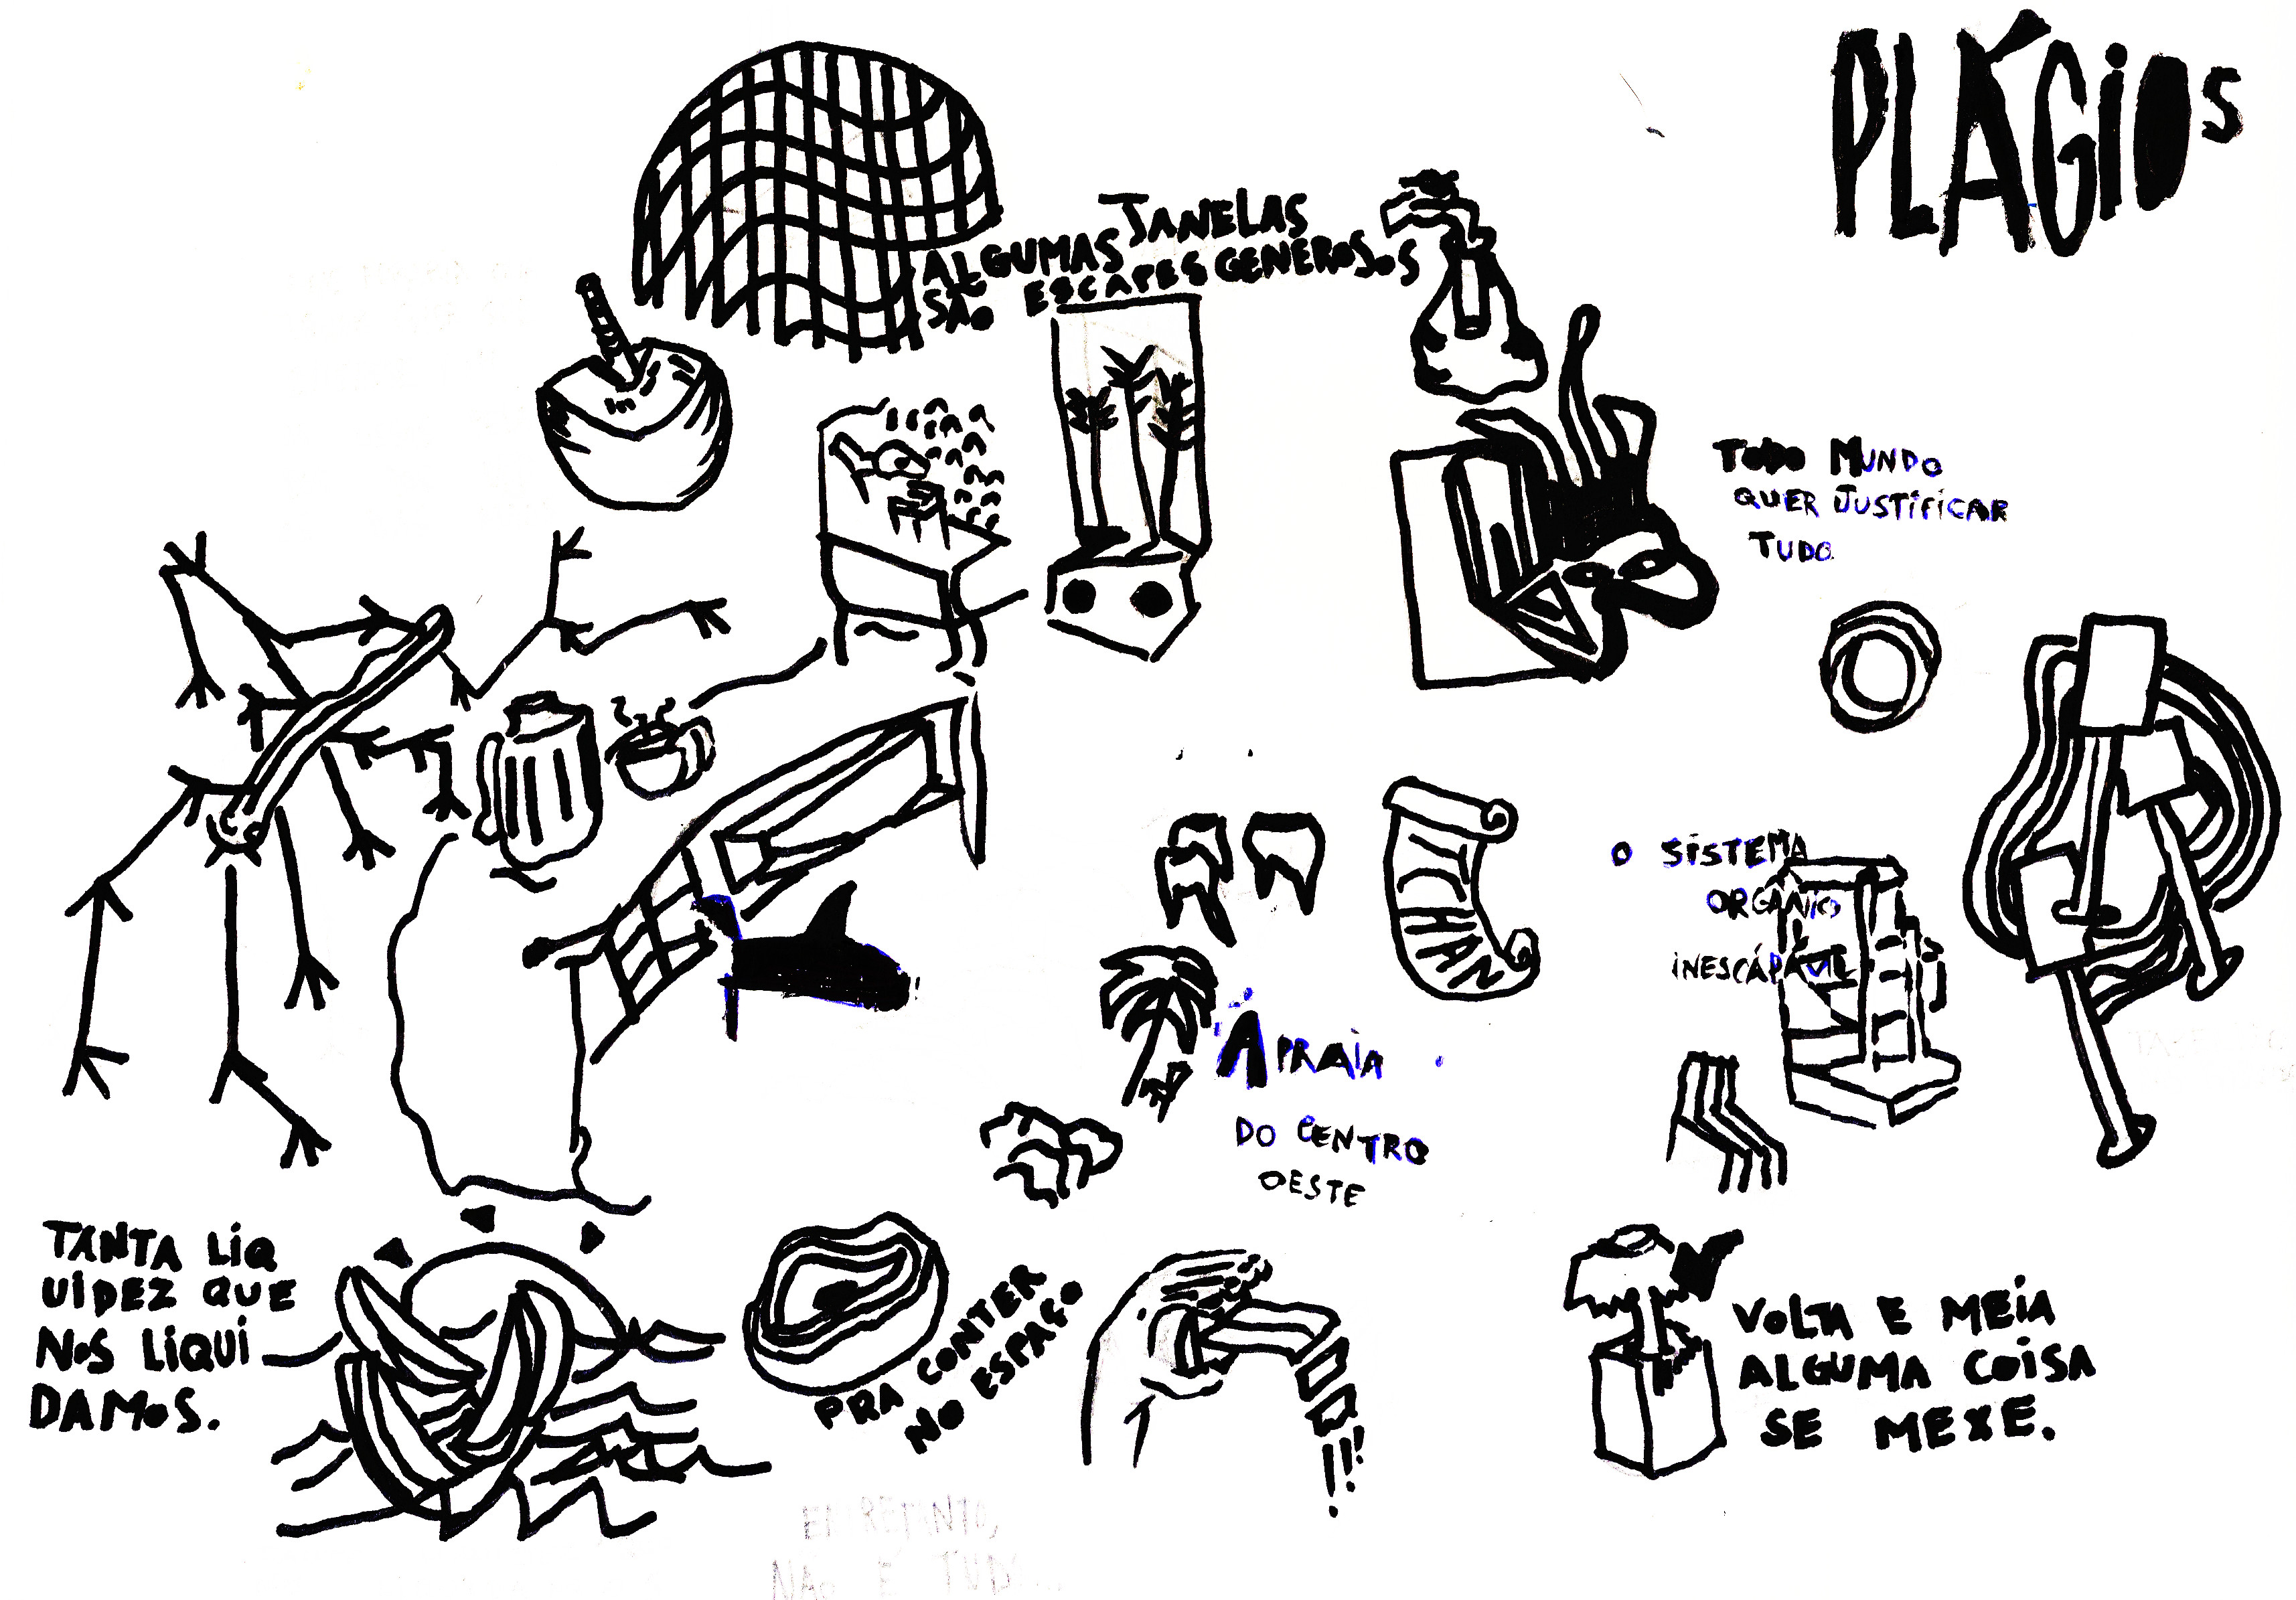 PLÁGIOS
ALGUMAS JANELAS
SÃO ESCAPES GENEROSOS
TODO MUNDO
QUER JUSTIFICAR
TUDO
O SISTEMA
ORGÂNICO
INESCÁPÁVEL
A PRAIA
DO CENTRO
OESTE
TANTA LIQ
UIDEZ QUE
NOS LIQUI
DAMOS.
PRA CONTER
NO ESPAÇO
!!!
VOLTA E MEIA
ALGUMA COISA
SE MEXE.
NÃO É TUD